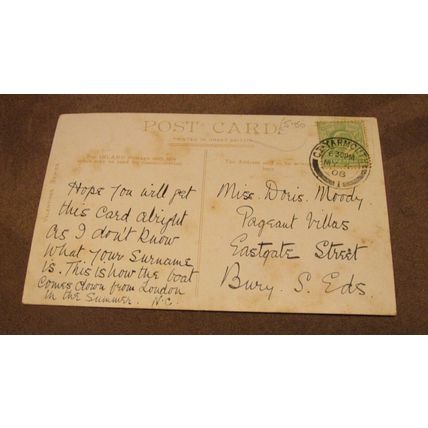 15-50
POST CARD
PRINTED IN GREAT BRITAIN
GT. YARMOUTH
6.30PM
MY
08
1
For INLAND Postage only this
The Address only to be written
here
Hope you will get
this Card alright
As I don't Know
What Your Surname
is. This is how the boat
comes down from London
in the Summer. N.C.
Miss. Doris. Moody.
Pageant Villas
Eastgate Street
Bury. S. Eds